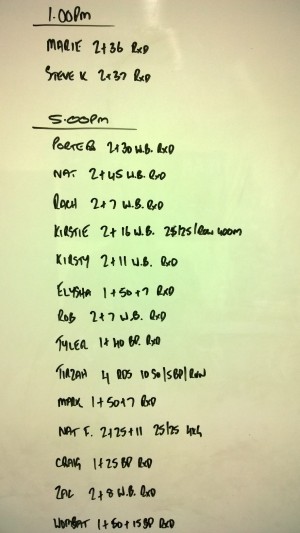 1.00pm
MARIE 2+36 RXD
STEVE K 2+37 RXD
5.00pm
PORTER 2+30 W.B. RXD
NAT 2+45 W.B. RXD
RACH 2+7 W.B. RXD
KIRSTIE 2+16 W.B. 25/25/ROW 400m
KIRSTY 2+11 W.B. RXD
ELYSHA 1+50+7 RXD
ROB 2+7 W.B. RXD
TYLER 1+40 BP. RXD
TIRZAH 4 RDS 10 50/5BP/ROW
MARK 1+50+7 RXD
NAT F. 2+25+11 25/25 4KG
CRAIG 1+25 BP RXD
ZAC 2+8 W.B. RXD
WOMBAT 1+50+15BP RXD